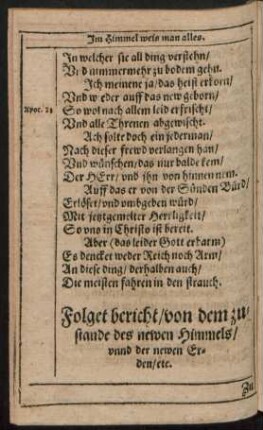 Im Himmel weis man alles.
In welcher sie all ding verstehn/
Vnd nimmermehr zu bodem gehn.
Ich meinene ja/ das heist erkorn/
Vnd weder auff das new geborn/
Apoc. 21
So wol nach allem leid erfrischt/
Vnd alle Threnen abgewischt.
Ach solte doch ein jederman/
Nach dieser frewd verlangen han/
Vnd wünschen/ das nur balde kem/
Der HErr/ vnd ihn von hinnen nem.
Auff das er von der Sünden Bürd/
Erlöset/ vnd vmbgeben würd/
Mit jetzgemelter Herrligkeit/
So vns in Christo ist bereit.
Aber (das leider Gott erbarm)
Es dencket weder Reich noch Arm/
An diese ding/ derhalben auch/
Die meisten fahren in den strauch.
Folget bericht/ von dem zu/
stande des newen Himmels/
vnnd der newen Er-
den/ etc.